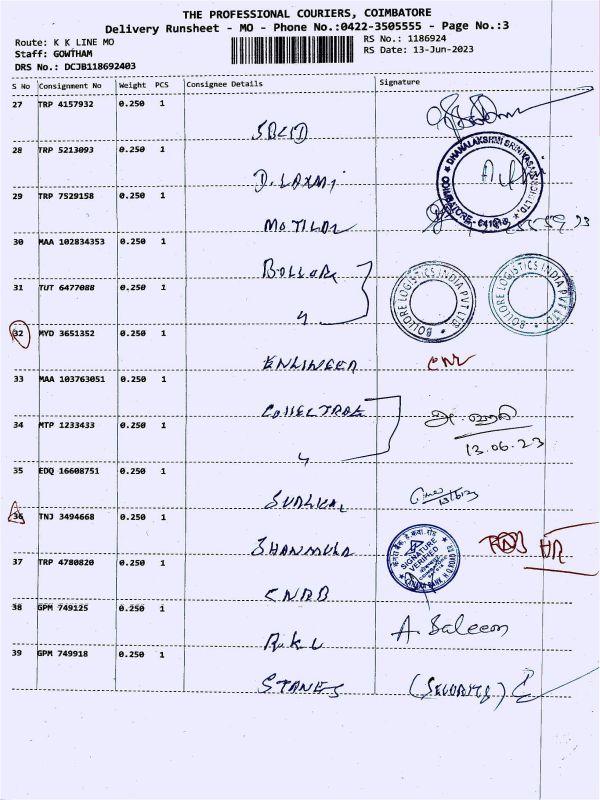 THE PROFESSIONAL COURIERS, COIMBATORE
Delivery Runsheet - MO - Phone No.:0422-3505555 - Page No.:3
Route: K K LINE MO
RS No.: 1186924
Staff: GOWTHAM
RS Date: 13-Jun-2023
DRS No.: DCJB118692403
S No Consignment No Weight PCS Consignee Details Signature
27 TRP 4157932 0.250 1
SOLID
28 TRP 5213093 0.250 1
D. LAXMI
DHANALAKSHMI SRINIVASAN
COIMBATORE
29 TRP 7529158 0.250 1
MOTILAL
30 MAA 102834353 0.250 1
BOLLORE
31 TUT 6477088 0.250 1
BOLLORE LOGISTICS INDIA PVT LTD.
BOLLORE LOGISTICS INDIA PVT LTD.
32 MYD 3651352 0.250 1
ENGINEER
33 MAA 103763051 0.250 1
COLLECTRAL
34 MTP 1233433 0.250 1
13.06.23
35 EDQ 16608751 0.250 1
SURGICAL
36 TNJ 3494668 0.250 1
SHANMUGA
SIGNATURE VERIFIED
CANARA BANK
37 TRP 4780820 0.250 1
CNRB
38 GPM 749125 0.250 1
R.K.L A. Saleem
39 GPM 749918 0.250 1
STANES (SECURITY)